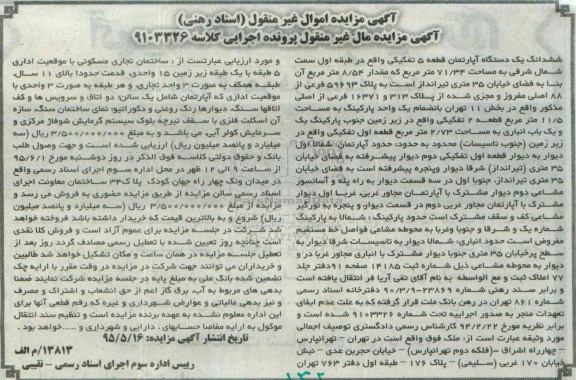 آگهی مزایده اموال غیر منقول (اسناد رهنی)
آگهی مزایده مال غیر منقول پرونده اجرایی کلاسه ۹۱۰۳۳۲۶
ششدانگ یک دستگاه آپارتمان قطعه ۵ تفکیکی واقع در طبقه اول سمت
شمال شرقی به مساحت ۷۱/۳۴ متر مربع که مقدار ۸/۵۴ متر مربع آن
بنا به فضای خیابان ۳۵ متری تیرانداز است به پلاک ۵۱۶۹۳ فرعی از
۸۸ اصلی مفروز و مجزی شده از پلاک ۳۱۳ و ۱۶۳۷۱ فرعی از اصلی
مذکور واقع در بخش ۱۱ تهران بانضمام یک واحد پارکینگ به مساحت
۱۱/۵ متر مربع قطعه ۲ تفکیکی واقع در زیر زمین جنوب پارکینگ یک
و یک باب انباری به مساحت ۲/۷۳ متر مربع قطعه اول تفکیکی واقع در
زیر زمین (جنوب تاسیسات) محدود به حدود: حدود آپارتمان: شمالا اول
دیوار به دیوار قطعه اول تفکیکی دوم دیوار پیشرفته به فضای خیابان
۳۵ متری (تیرانداز) شرقا دیوار و پنجره پیشرفته است به فضای خیابان
۳۵ متری تیرانداز، جنوبا اول در سه قسمت دیوار به راه پله و آسانسور
مشاعی دوم دیوار مشترک با آپارتمان مجاور غربی، غربا اول دیوار
مشترک با آپارتمان مجاور غربی دوم در قسمت دیوار و پنجره به نورگیر
مشاعی کف و سقف مشترک است حدود پارکینگ: شمالا به پارکینگ
شماره یک و شرقا و جنوبا وغربا به محوطه مشاعی فواصل خط مستقیم
مفروض است حدود انباری: شمالا دیوار به تاسیسات شرقا دیوار به
سطح پرخیابان ۳۵ متری جنوبا دیوار مشترک با انباری مجاور غربا در و
دیوار به محوطه مشاعی ذیل شماره ثبت ۱۴۱۸۵ صفحه ۹۱ دفتر جلد
۷۷ املاک ثبت و مع الواسطه به نام آقای تقی آریا فر انتقال یافته است
و برابر سند رهنی شماره ۲۳۸۶۹-۹۰/۳/۱ دفترخانه اسناد رسمی
شماره ۸۶۱ تهران در رهن بانک ملت قرار گرفته که به علت عدم ایفای
تعهدات منجر به صدور اجراییه تحت شماره ۹۱۰۳۳۲۶ شده است و
برابر نظریه مورخ ۹۴/۲/۲۲ کارشناس رسمی دادگستری توصیف اجمالی
مورد وثیقه عبارت است از: ملک فوق واقع است در تهران – تهرانپارس
– چهارراه اشراق – (فلکه دوم تهرانپارس) – خیابان حجربن عدی – نبش
خیابان ۱۷۰ غربی (سلیمی) – پلاک ۱۷۶ – طبقه اول دفتر ۷۶۳ تهران
و مورد ارزیابی عبارتست از: ساختمان تجاری مسکونی با موقعیت اداری
۵ طبقه با یک طبقه زیر زمین ۱۵ واحدی، قدمت حدودا بالای ۱۱ سال،
طبقه همکف به صورت ۳ واحد تجاری، و هر طبقه به صورت ۳ واحدی با
موقعیت اداری که آپارتمان شامل یک سالن، دو اتاق و سرویس ها و کف
اتاقها سنگ، دیوارها رنگ روغنی و دکوراتیو، نمای ساختمان سنگ، سازه
آن اسکلت فلزی با سقف تیرچه بلوک سیستم گرمایش شوفاژ مرکزی و
سرمایش کولر آبی، می باشد و به مبلغ ۳/۵۰۰/۰۰۰/۰۰۰ ریال (سه
میلیارد و پانصد میلیون ریال) ارزیابی شده است و جهت وصول طلب
بانک و حقوق دولتی کلاسه فوق الذکر در روز دوشنبه مورخ ۹۵/۶/۱
از ساعت ۹ الی ۱۲ ظهر در محل اداره سوم اجرای اسناد رسمی واقع
در میدان ونک چهار راه جهان کودک پلاک ۳۶ ساختمان معاونت اجرای
اسناد رسمی سالن مزایده از طریق مزایده حضوری به فروش می رسد و
مزایده از مبلغ ۳/۵۰۰/۰۰۰/۰۰۰ ریال (سه میلیارد و پانصد میلیون
ریال) شروع و به بالاترین قیمت که خریدار داشته باشد فروخته خواهد
شد شرکت در جلسه مزایده برای عموم آزاد است و فروش کلا نقدی
است چنانچه روز تعیین شده با تعطیل رسمی مصادف گردد روز بعد از
تعطیل جلسه مزایده در همان ساعت و مکان تشکیل خواهد شد طالبین
و خریداران می توانند جهت شرکت در مزایده در وقت مقرر با ارایه چک
تضمین شده بانک ملی به مبلغ پایه در جلسه مزایده شرکت نمایند ضمنا
بدهی های مربوط به آب، برق گاز اعم از حق انشعاب و اشتراک و مصرف
و نیز بدهی مالیاتی و عوارض شهرداری و غیره که رقم قطعی آنها برای
این اداره معلوم نشده به عهده برنده مزایده است و تنظیم سند انتقال
موکول به ارایه مفاصا حسابهای ، دارایی و شهرداری و .....خواهد بود.
تاریخ انتشار آگهی مزایده: ۹۵/۵/۱۶
۱۳۸۱۳/م الف
رییس اداره سوم اجرای اسناد رسمی – نقیبی